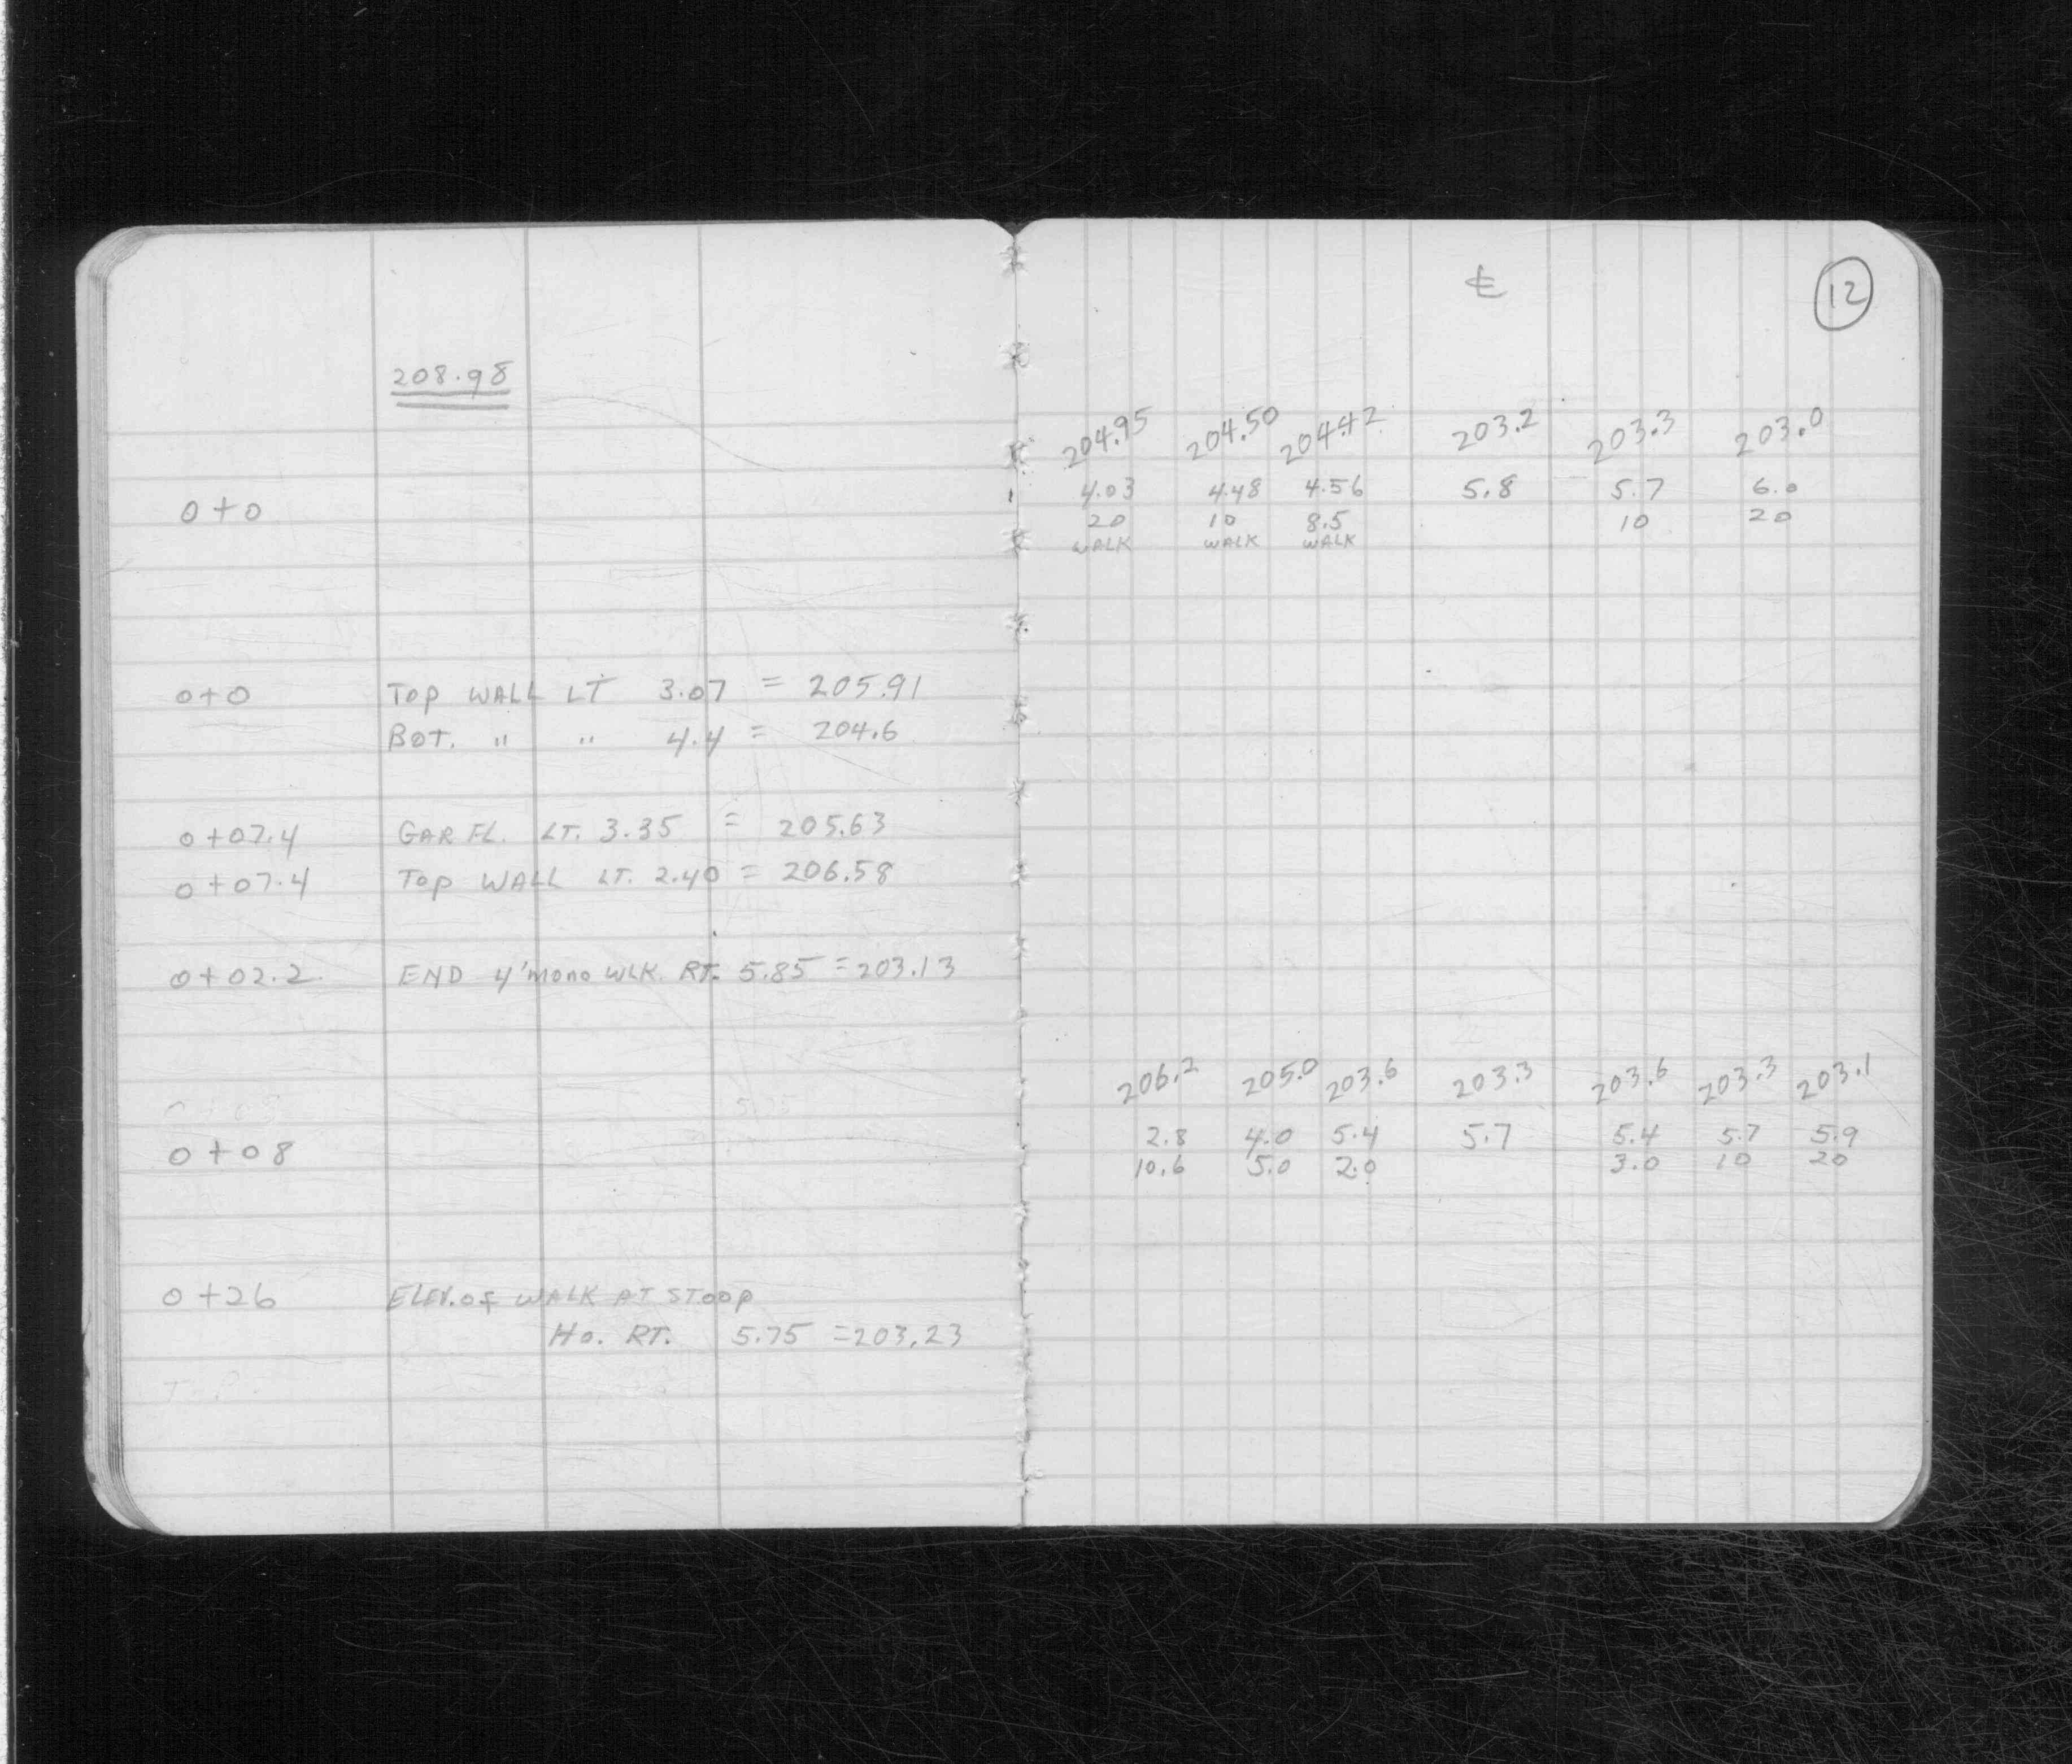 208.98
0+0
0+0 TOP WALL LT 3.07 = 205.91
BOT. " " 4.4 = 204.6
0+07.4 GAR FL. LT. 3.35 = 205.63
0+07.4 TOP WALL LT. 2.40 = 206.58
0+02.2 END 4' mono WLK. RT. 5.85 = 203.13
5.75
0+08
0+26 ELEV. of WALK AT STOOP
Ho. RT. 5.75 = 203.23
T.P.
℄ 12
204.95 204.50 204.42 203.2 203.3 203.0
4.03 4.48 4.56 5.8 5.7 6.0
20 10 8.5 10 20
WALK WALK WALK
206.2 205.0 203.6 203.3 203.6 203.3 203.1
2.8 4.0 5.4 5.7 5.4 5.7 5.9
10.6 5.0 2.0 3.0 10 20